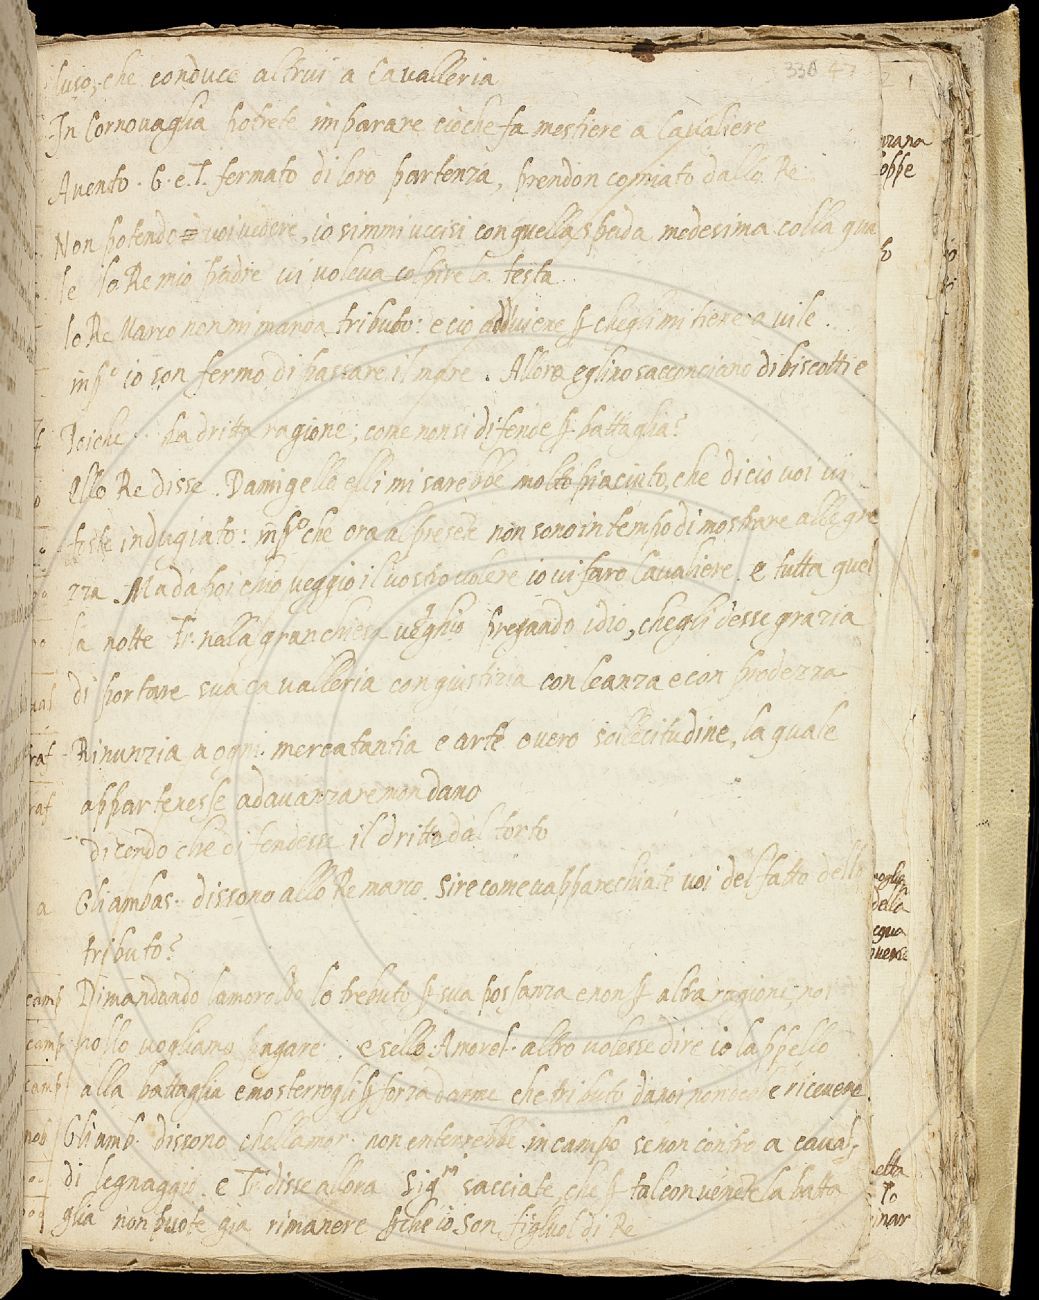 luso, che conduce altrui a Cavalleria
In Cornovaglia potrete imparare ciò che fa mestiere a Cavaliere
Avento . G. e. T. fermato di loro partenza, prendon comiato dallo Re
Non potendo voi vedere, io simmi uccisi con quella spada medesima colla qua
le lo Re mio padre vi voleva colpire la testa
lo Re Marco non mi manda tributo: e ciò addiviene ꝑ chegli mi tiene a vile
inꝑo io son fermo di passare il mare. Allora eglino sacconciano di biscotti e
Poiche .. ha dritta ragione, come non si difende ꝑ battaglia?
Ello Re disse. Damigello elli mi sarebbe molto piaciuto, che di ciò voi vi
foste indugiato: inꝑo che ora al presete non sono in tempo di mostrare allegre
zza. Ma da poi chio veggio il vostro volere io vi farò Cavaliere. e tutta quel
la notte Tr. nalla gran chiesa veghiò pregando idio, chegli desse grazia
di portare sua cavalleria con giustizia con leanza e con prodezza
Rinunzia a ogni mercatantia e arte overo sollecitudine, la quale
appartenesse ad avanzare mondano
dicendo che difendesse il dritto dal torto
Gli ambas. dissono allo Re marco. Sire come vapparecchiate voi del fatto dello
tributo?
Dimandando lamoroldo lo trebuto ꝑ sua possanza e non ꝑ altra ragione, noi
nollo vogliamo pagare. e sello Amorol. altro volesse dire io lappello
alla battaglia e mosterrogli ꝑ forza darme che tributo da noi non deve ricevere
Gli amb. dissono chellamor. non enterrebbe in campo se non contro a caval.
di legnaggio. e Tr. disse allora Sig.ri sacciate, che ꝑ tal convenente la batta
glia non puote già rimanere ꝑche io son figliuol di Re